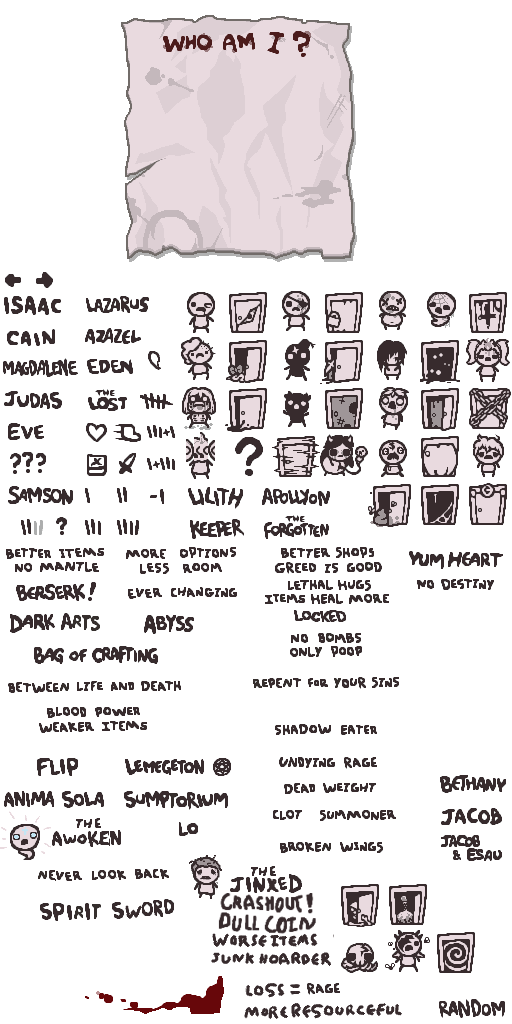 WHO AM I ?
ISAAC LAZARUS
CAIN AZAZEL
MAGDALENE EDEN
JUDAS THE LOST
EVE
???
?
SAMSON LILITH APOLLYON
? KEEPER THE FORGOTTEN
BETTER ITEMS
NO MANTLE
MORE OPTIONS
LESS ROOM
BETTER SHOPS
GREED IS GOOD
YUM HEART
LETHAL HUGS
ITEMS HEAL MORE
NO DESTINY
BERSERK!
EVER CHANGING
LOCKED
DARK ARTS
ABYSS
NO BOMBS
ONLY POOP
BAG OF CRAFTING
BETWEEN LIFE AND DEATH
REPENT FOR YOUR SINS
BLOOD POWER
WEAKER ITEMS
SHADOW EATER
FLIP
LEMEGETON
UNDYING RAGE
DEAD WEIGHT
BETHANY
ANIMA SOLA
SUMPTORIUM
CLOT SUMMONER
JACOB
THE AWOKEN
LO
BROKEN WINGS
JACOB
& ESAU
NEVER LOOK BACK
THE
JINXED
CRASHOUT!
SPIRIT SWORD
DULL COIN
WORSE ITEMS
JUNK HOARDER
LOSS = RAGE
MORE RESOURCEFUL
RANDOM